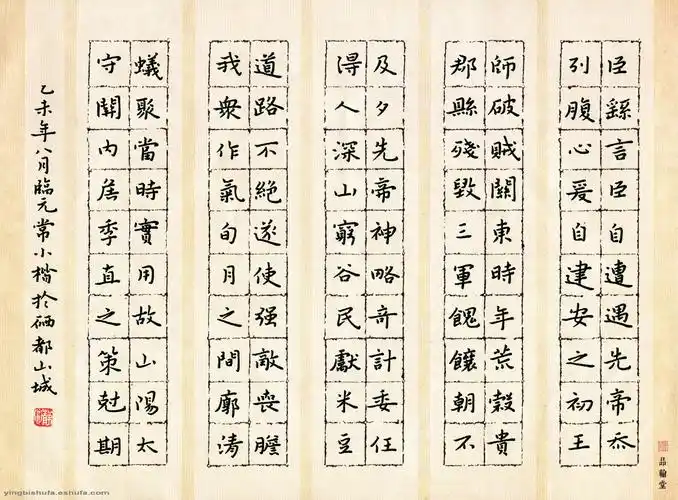 臣繇言臣自遭遇先帝忝
列腹心爰自建安之初王
師破賊關東時年荒穀貴
郡縣殘毀三軍餽饟朝不
及夕先帝神略奇計委任
得人深山窮谷民獻米豆
道路不絕遂使强敵喪膽
我衆作氣旬月之間廓清
蟻聚當時實用故山陽太
守關内侯季直之策尅期
乙未年八月臨元常小楷於硒都山城
品翰堂
yingbishufa.eshufa.com